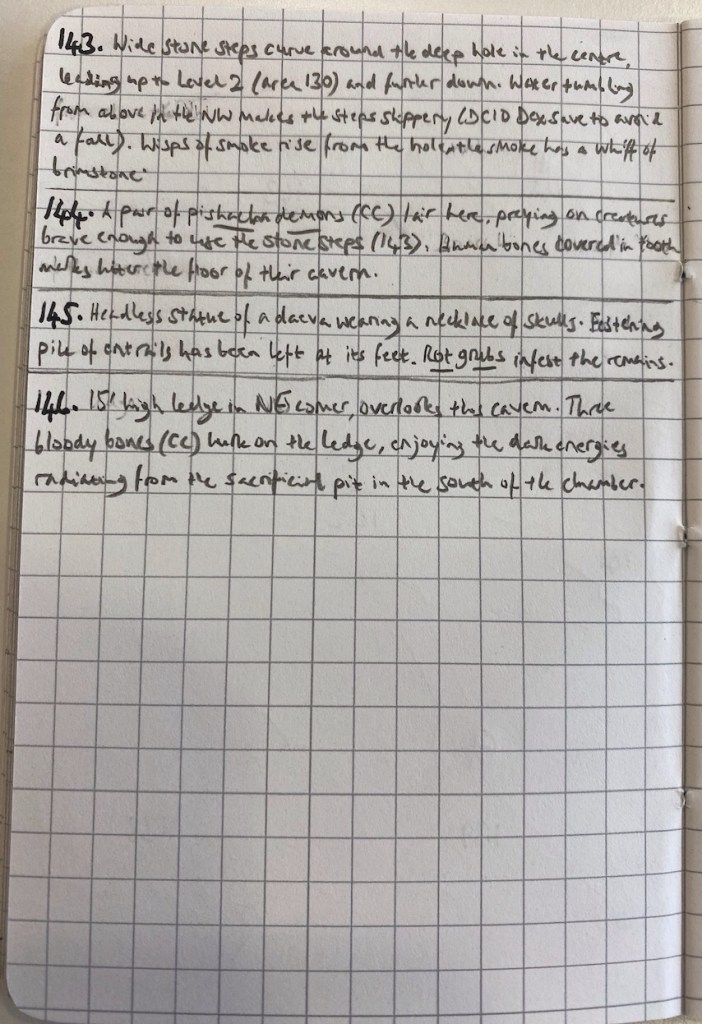 143. Wide stone steps curve around the deep hole in the centre,
leading up to Level 2 (area 130) and further down. Water tumbling
from above in the NW makes the steps slippery (DC10 Dex save to avoid
a fall). Wisps of smoke rise from the hole, the smoke has a whiff of
brimstone.
144. A pair of pishacha demons (CC) lair here, preying on creatures
brave enough to use the stone steps (143). Human bones covered in tooth
marks litter the floor of their cavern.
145. Headless statue of a daeva wearing a necklace of skulls. Festering
pile of entrails has been left at its feet. Rot grubs infest the remains.
146. 15' high ledge in NE corner, overlooks this cavern. Three
bloody bones (CC) lurk on the ledge, enjoying the dark energies
radiating from the sacrificial pit in the south of the chamber.